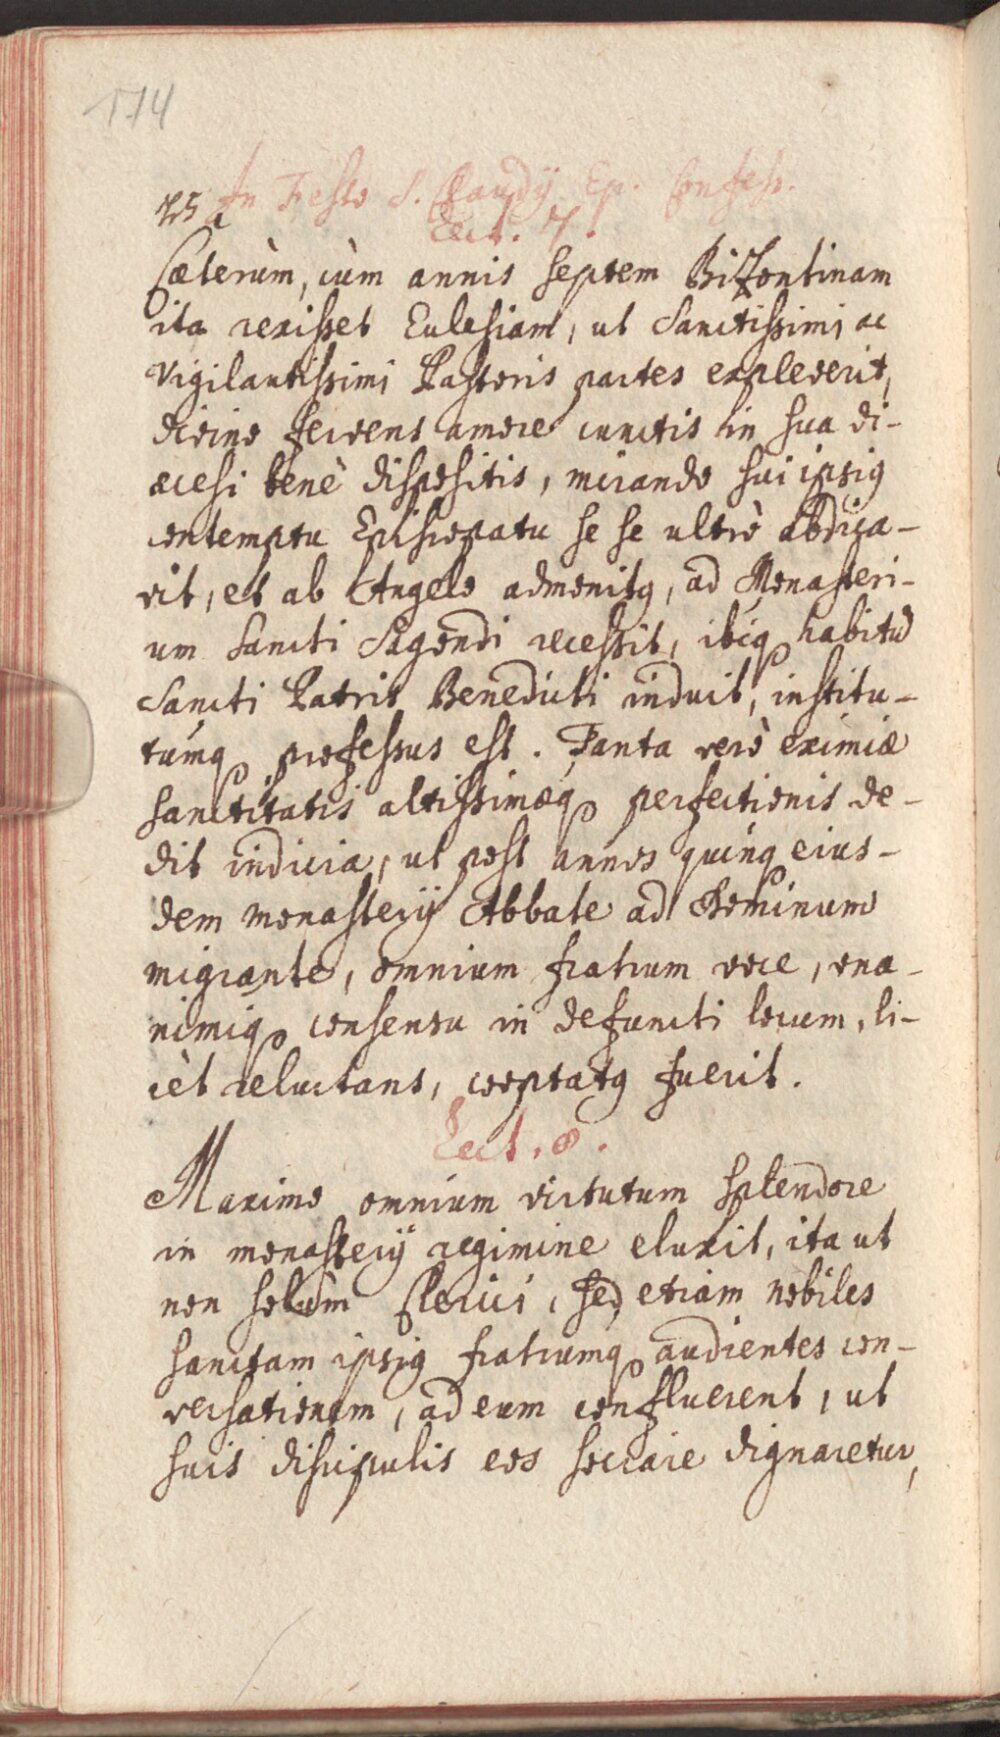 174
In Festo S. Claudÿ Ep. Confess.
Lect. 7.
Cæterùm, cùm annis septem Bizontinam
ita rexisset Ecclesiam, ut Sanctissimi ac
Vigilantissimi Pastoris partes expleverit,
divino fervens amore cunctis in sua di-
æcesi benè dispositis, mirando sui ipsiꝰ
contemptu Episcopatu se se ultrò abdica-
vit, et ab Angelo admonitꝰ, ad Monasteri-
um Sancti Eugendi recessit, ibiq habitũ
Sancti Patris Benedicti induit, institu-
túmq professus est. Tanta verò eximiæ
sanctitatis altissimæq perfectionis de-
dit indicia, ut post annos quinq eius-
dem monasterÿ Abbate ad Dominum
migrante, omnium fratrum voce, una-
nimiq consensu in defuncti locum, li-
cèt reluctans, cooptatꝰ fuerit.
Lect. 8.
Maximo omnium virtutum splendore
in monasterÿ regimine eluxit, ita ut
non solùm Clerici, sed etiam nobiles
sanctam ipsiꝰ fratrumq audientes con-
versationem, ad eum confluerent, ut
suis discipulis eos sociare dignaretur,